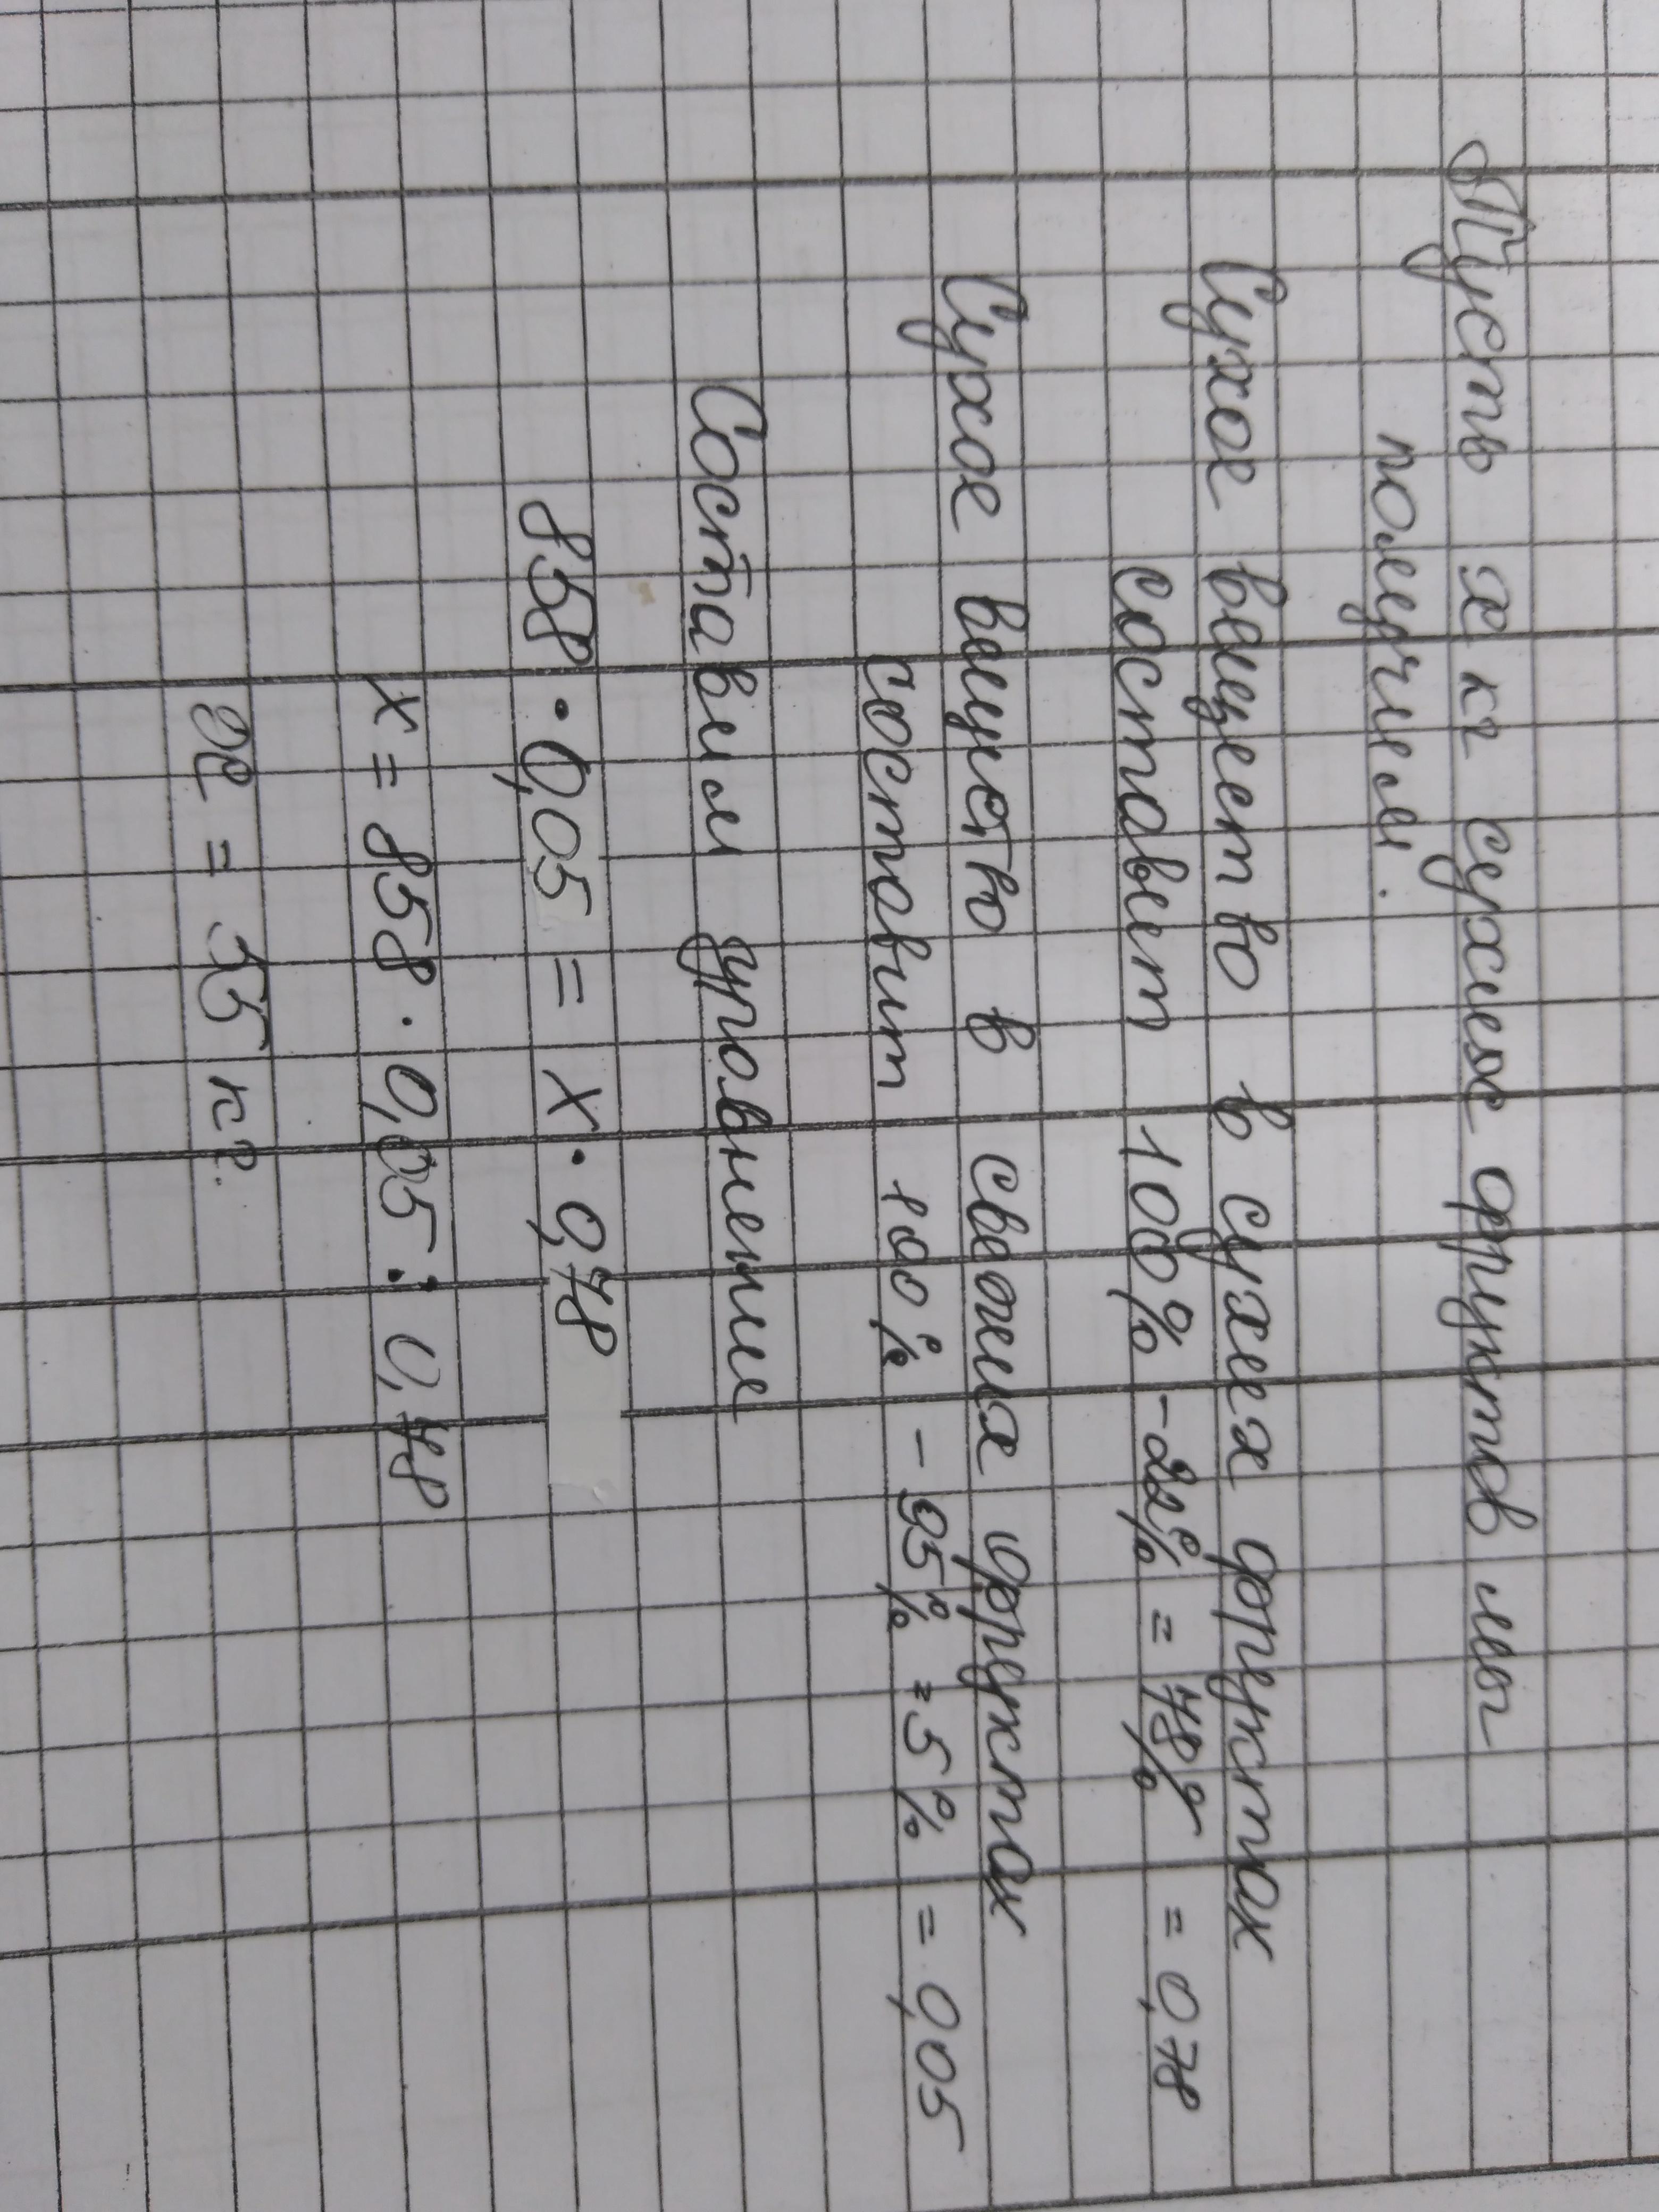 Пусть x кг сухих фруктов мы
получим.
Сухое вещество в сухих фруктах
составит 100% - 22% = 78% = 0,78
Сухое вещество в свежих фруктах
составит 100% - 95% = 5% = 0,05
Составим уравнение
858 · 0,05 = x · 0,78
x = 858 · 0,05 : 0,78
x = 55 кг.